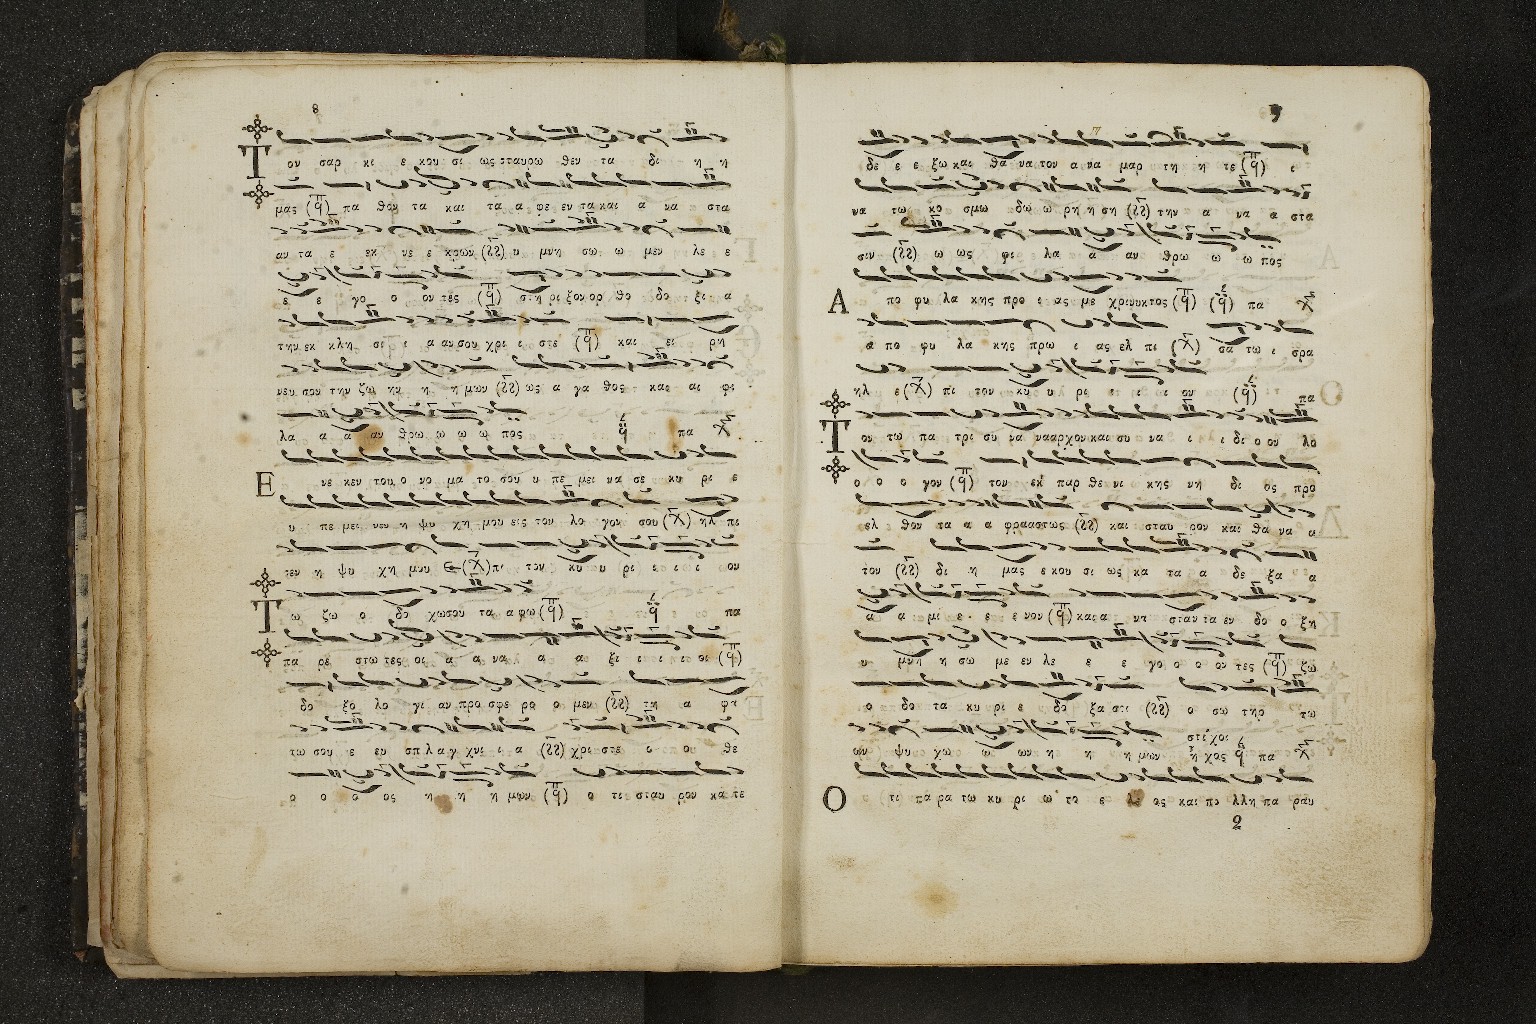 8
Τ ον σαρ κι ε κου σι ως σταυρω θεν τα δι η η
μας (π̈q) πα θον τα και τα α φε εν τα και α να στα
αν τα ε εκ νε ε κρων (ςς) υ μνη σω ω μεν λε ε
ε ε γο ο ον τες (q) στη ρι ξον ορ θο δο ξι α
την εκ κλη σι ι α αν σου χρι ι στε (q) και ει ρη
νευ σου την ζω ην η η μων (ςς) ως α γα θος και αι φι
λα α α αν θρω ω ω ω πος q πα
Ε νε κεν του ο νο μα το σου υ πε μει να σε κυ ρι ε
υ πε μει νεν η ψυ χη μου εις τον λο γον σου (χ) ηλ πι
σεν η ψυ χη μου ε (χ) πι τον κυ υ ρι ι ι ι ον
Τ ω ζω ο δο χωσου τα α φω (q) q πα
πα ρε στω τες οι α α να α α ξι ι ι ι οι (q)
δο ξο λο γι αν προ σφε ρο ο μεν (ςς) τη α φα
τω σου ε εν σπλαγ χνι ι α (ςς) χρι στε ο ο θε
ο ο ο ος η η η μων (q) ο τι σταυ ρον κα τε
9
δε ε ε ξω και θα να τον α να μαρ τη η τε (q) ι
να τω κο σμω δω ω ρη η ση (ςς) την α να α στα
σιν (ςς) ω ως φι λα α αν θρω ω ω πος
Α πο φυ λα κης προ ι ας με χρινυκτος (q) (q) πα
α πο φυ λα κης πρω ι ας ελ πι (χ) σα τω ι σρα
ηλ ε (χ) πι τον κυ υ ρι ι ι ι ον (q) πα
Τ ον τω πα τρι συ να νααρχον και συ να ι ι δι ο ον λο
ο ο ο γον (q) τον εκ παρ θε νι κης νη δι ος προ
ελ θον τα α α φρααστως (ςς) και σταυ ρον και θα να α
τον (ςς) δι η μας ε κου σι ως κα τα α δε ξα α
α α μι ε ε ε ε νον (q) και α να σταν τα εν δο ο ξη
υ μνη η σω με εν λε ε ε γο ο ο ον τες (q) ζω
ο δο τα κυ ρι ε δο ξα σοι (ςς) ο σω τηρ τω
ων ψυ χω ω ων η η η μων στίχοι ήχος q πα
Ο τι πα ρα τω κυ ρι ω το ε λε ος και πο λλη πα ραυ
2